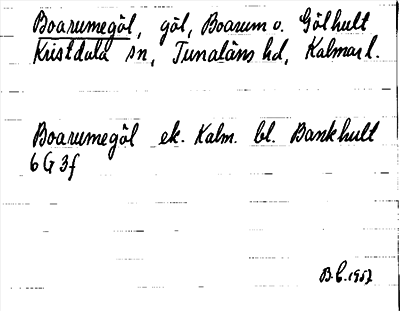 Boarumegöl, göl, Boarum o. Gölhult
Kristdala sn, Tunaläns hd, Kalmar l.
Boarumegöl ek. Kalm. bl. Bankhult
6 G 3f
B.E. 1957